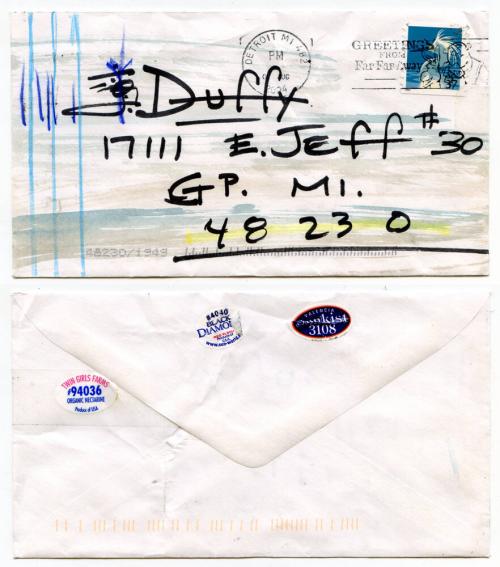 DETROIT MI 482
PM
AUG
2004
GREETINGS
FROM
Far Far Away
J. Duffy
17111 E. Jeff #30
GP. MI.
48230
48230/1949
#4040
BLACK
DIAMOND
VALENCIA
Sunkist
3108
TWIN GIRLS FARMS
#94036
ORGANIC NECTARINE
Product of USA